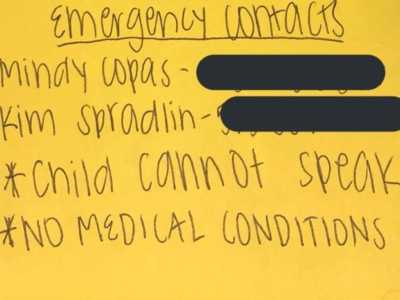 emergency contacts
Mindy Copas -
Kim Spradlin -
*Child cannot speak
*NO MEDICAL CONDITIONS